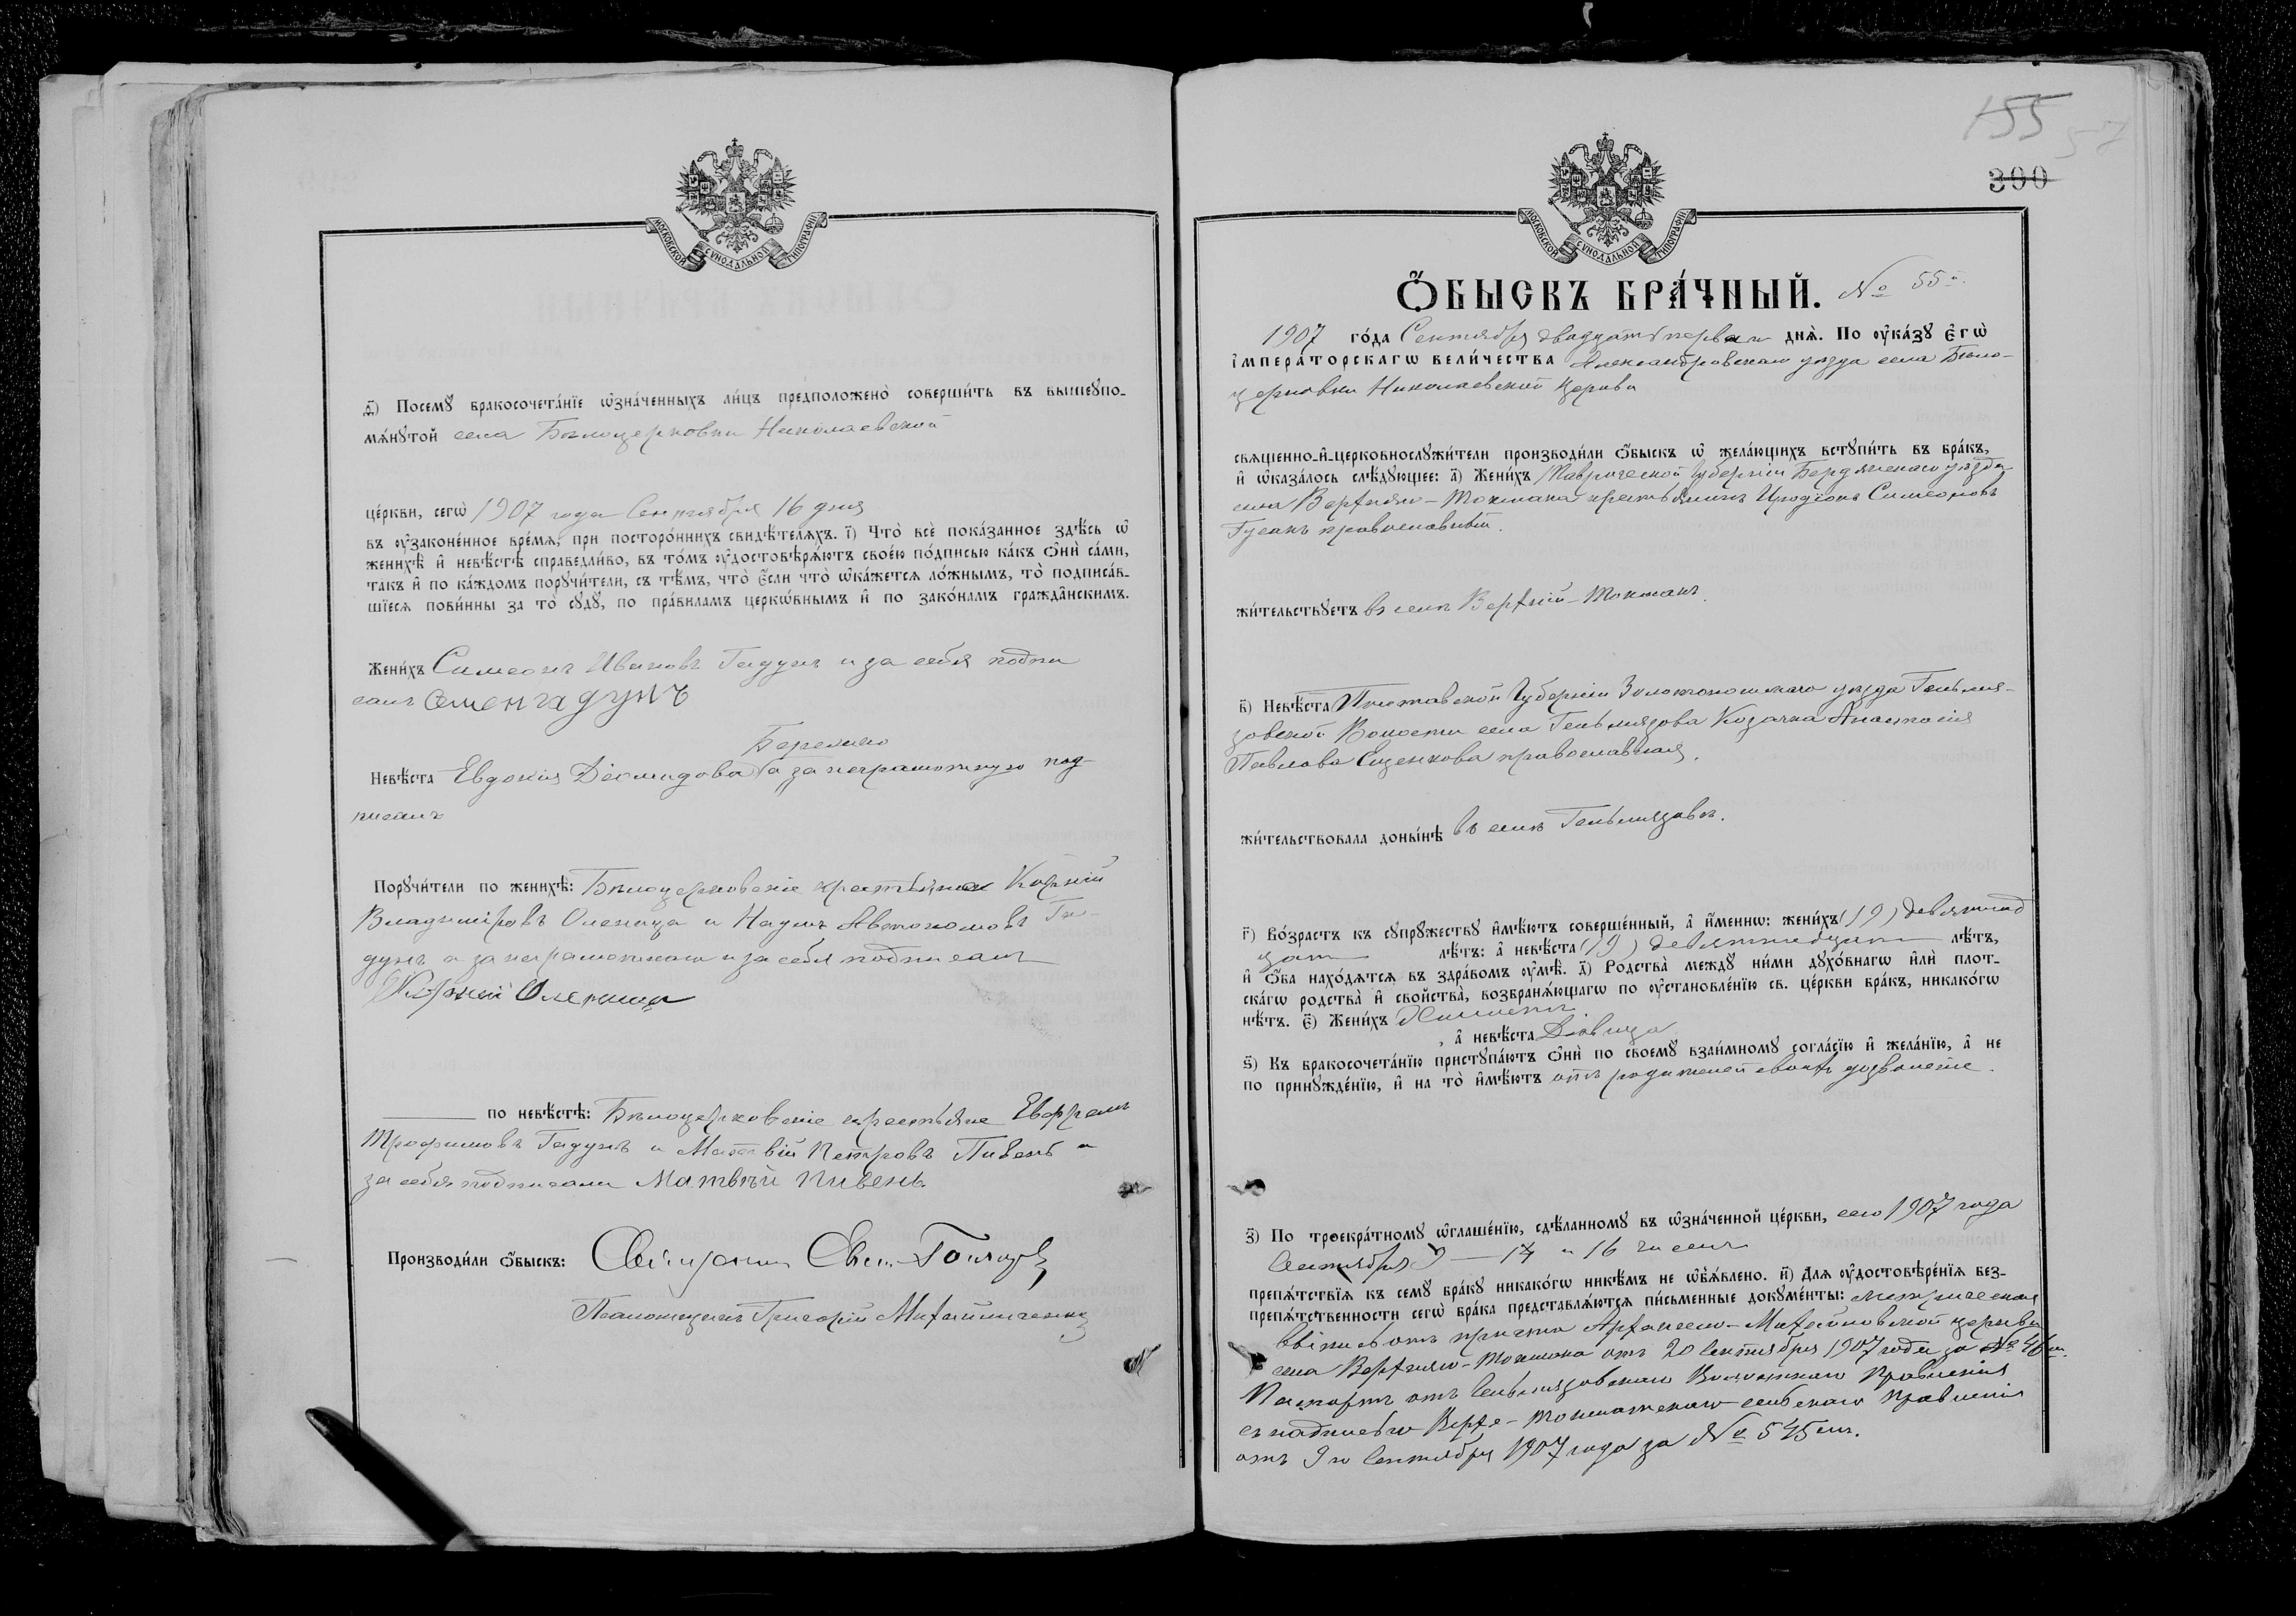 МОСКОВСКОЙ СѴНОДАЛЬНОЙ ТИПОГРАФІИ
д҃) Посемꙋ бракосочета́нїе ѡ҆зна́ченныхъ ли́цъ предположено̀ соверши́ть въ вышеꙋпо-
мѧ́нꙋтой села Бѣлоцерковки Николаевской
це́ркви, сегѡ̀ 1907 года Сентября 16 дня
въ ᲂу҆зако́ненное вре́мѧ, при посторо́ннихъ свидѣ́телѧхъ. і҃) Что̀ всѐ пока́занное здѣ́сь ѡ҆
женихѣ̀ и҆ невѣ́стѣ справедли́во, въ то́мъ ᲂу҆достовѣрѧ́ютъ свое́ю по́дписью ка́къ ѻ҆нѝ са́ми,
та́къ и҆ по ка́ждомъ порꙋчи́тели, съ тѣ́мъ, что̀ є҆́сли что̀ ѡ҆ка́жетсѧ ло́жнымъ, то̀ подписа́в-
шїесѧ пови́нны за то̀ сꙋдꙋ̀, по пра́виламъ церкѡ́внымъ и҆ по зако́намъ гражда̂нскимъ.
Жени́хъ Симеонъ Ивановъ Гадунъ и за себя подпи
салъ Семенгадунъ
Бережно
Невѣ́ста Евдокия Діомидова а за неграмотную под-
писалъ
Порꙋчи́тели по женихѣ̀: Бѣлоцерковскіе крестьяне Корній
Владиміровъ Оленица и Наумъ Автономовъ Га-
дунъ а за неграмотнаго и за себя подписалъ
Корней Оленица
по невѣ́стѣ: Бѣлоцерковскіе крестьяне Евфремъ
Трофимовъ Гадунъ и Матвій Петровъ Пивень и
за себя подписали Матвѣй Пивень.
Производи́ли ѻ҆́быскъ: Священникъ Евг. Гончаръ
Псаломщикъ Григорій Михайличенко
155
57
300
МОСКОВСКОЙ СѴНОДАЛЬНОЙ ТИПОГРАФІИ
Ѻ҆́БЫСКЪ БРА́ЧНЫЙ. № 55й.
1907 го́да Сентября двадцать перваго днѧ̀. По ᲂу҆ка́зꙋ Є҆гѡ̀
И҆мпера́торскагѡ вели́чества Александровскаго уѣзда села Бѣло-
церковки Николаевской церкви
свѧще́нно-и҆-церковнослꙋжи́тели производи́ли ѻ҆́быскъ ѡ҆ жела́ющихъ встꙋпи́ть въ бра́къ,
и҆ ѡ҆каза́лось слѣ́дꙋющее: а҃) Жени́хъ Таврической Губерніи Бердянскаго уѣзда
села Верхняго-Токмака крестьянинъ Иродіонъ Симеоновъ
Гусакъ православный.
жи́тельствꙋетъ въ селѣ Верхній-Токмакѣ.
в҃) Невѣ́ста Полтавской Губерніи Золотоношскаго уѣзда Гельмя-
зовской Волости села Гельмязова Козачка Анастасія
Павлова Єщенкова православная.
жи́тельствовала доны́нѣ въ селѣ Гельмязовѣ.
г҃) Во́зрастъ къ сꙋпрꙋ́жествꙋ и҆мѣ́ютъ соверше́нный, а҆ и҆́меннѡ: жени́хъ (19) девятнад
цать лѣ́тъ: а҆ невѣ́ста (19) девятнадцать лѣ́тъ,
и҆ ѻ҆́ба нахо́дѧтсѧ въ здра́вомъ ᲂу҆мѣ̀. д҃) Родства̀ междꙋ̀ ни́ми дꙋхо́внагѡ и҆лѝ плот-
ска́гѡ родства̀ и҆ сво́йства̀, возбранѧ́ющагѡ по ᲂу҆становле́нїю св. це́ркви бра́къ, никако́гѡ
нѣ́тъ. є҃) Жени́хъ Холостъ
, а҆ невѣ́ста Дѣвица
ѕ҃) Къ бракосочета́нїю пристꙋпа́ютъ ѻ҆нѝ по своемꙋ̀ взаи́мномꙋ согла́сїю и҆ жела́нїю, а҆ не
по принꙋжде́нїю, и҆ на то̀ и҆мѣ́ютъ отъ родителей своихъ дозволеніе.
з҃) По троекра́тномꙋ ѡ҆глаше́нїю, сдѣ́ланномꙋ въ ѡ҆зна́ченной це́ркви, сего 1907 года
Сентября 9 — 14 и 16 числъ
препѧ́тствїѧ къ семꙋ̀ бра́кꙋ никако́гѡ никѣ́мъ не ѡ҆б̾ѧ́влено. и҃) Длѧ ᲂу҆достовѣре́нїѧ без-
препѧ́тственности сегѡ̀ бра́ка представлѧ́ютсѧ пи́сьменные докꙋме́нты: метрическая
выпись отъ причта Архангело-Михайловской церкви
села Верхняго-Токмака отъ 20 Сентября 1907 года за № 46м.
Паспортъ отъ Гельмязовскаго Волостнаго Правленія
съ надписью Верхе-Токмакскаго сельскаго Правленія
отъ 9го Сентября 1907 года за № 545мъ.